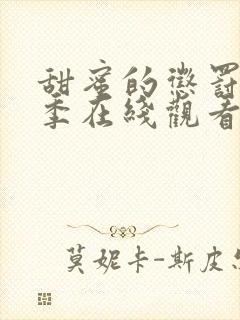 甜蜜的懲罰
季在綫觀看
莫妮卡-斯皮